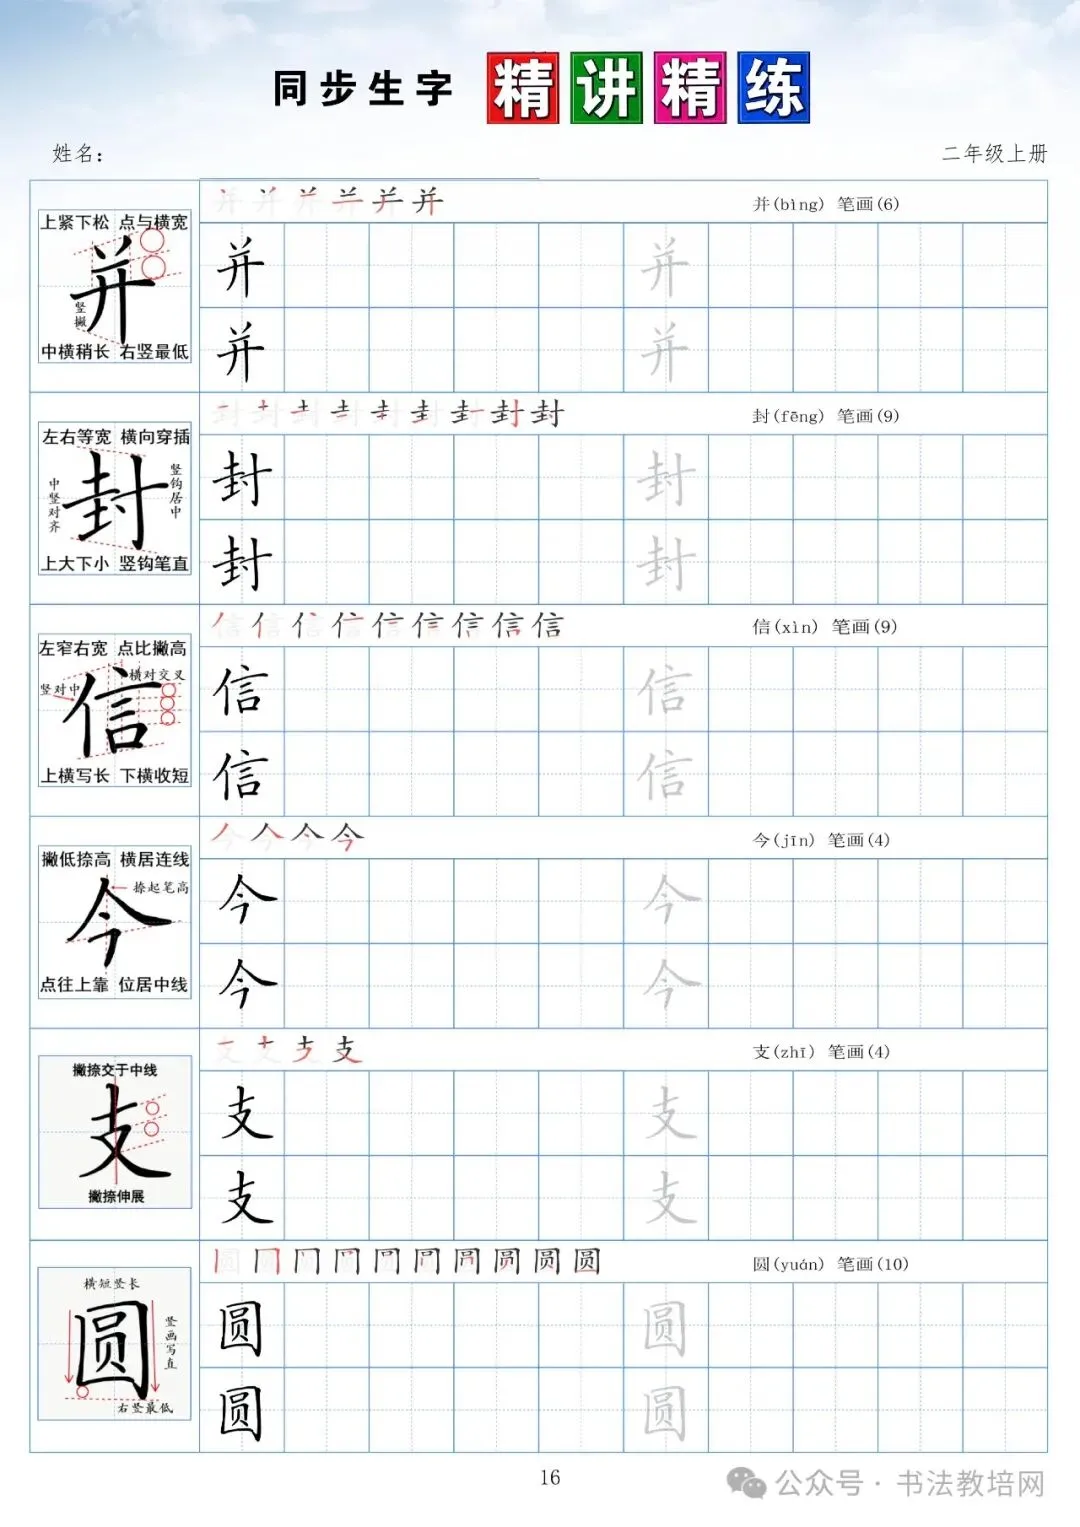 同步生字 精讲精练
姓名： 二年级上册
并 并 并 并 并 并 并(bìng) 笔画(6)
上紧下松 点与横宽
并
竖撇
中横稍长 右竖最低
并 并
并 并
封 封 封 封 封 封 封 封 封 封(fēng) 笔画(9)
左右等宽 横向穿插
封
中竖对齐
竖钩居中
上大下小 竖钩笔直
封 封
封 封
信 信 信 信 信 信 信 信 信 信(xìn) 笔画(9)
左窄右宽 点比撇高
横对交叉
竖对中
信
上横写长 下横收短
信 信
信 信
今 今 今 今 今(jīn) 笔画(4)
撇低捺高 横居连线
捺起笔高
今
点往上靠 位居中线
今 今
今 今
支 支 支 支 支(zhī) 笔画(4)
撇捺交于中线
支
撇捺伸展
支 支
支 支
圆 圆 圆 圆 圆 圆 圆 圆 圆 圆 圆(yuán) 笔画(10)
横短竖长
圆
竖画写直
右竖最低
圆 圆
圆 圆
16
公众号 · 书法教培网